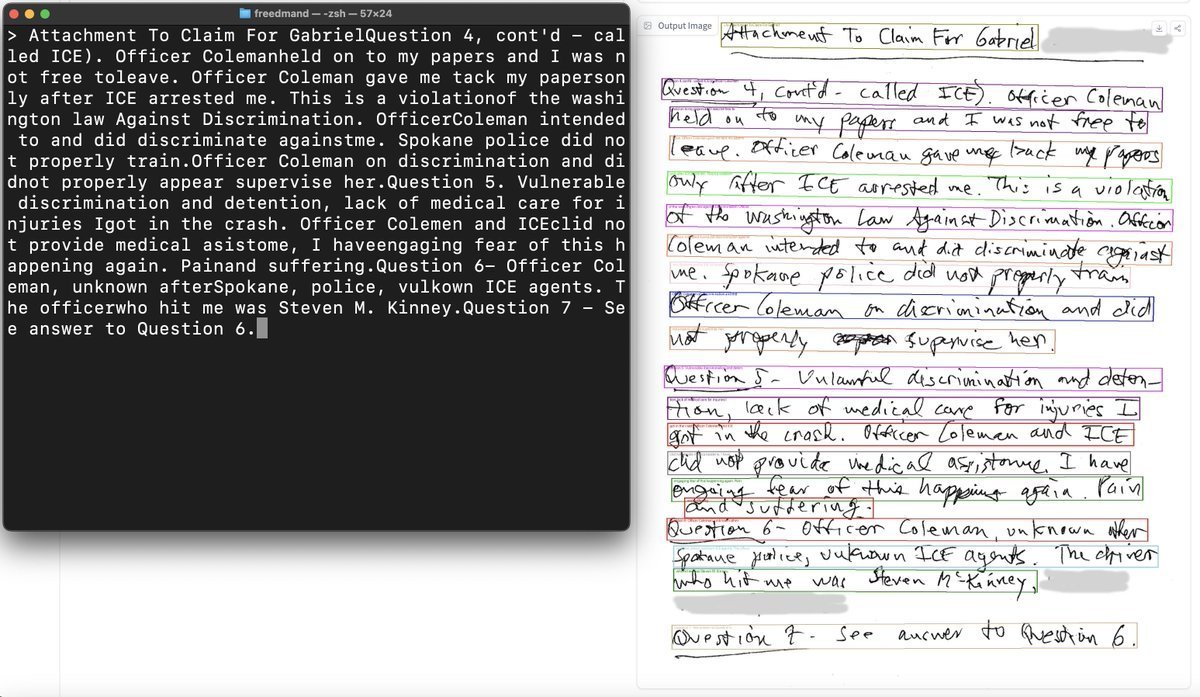 freedmand — -zsh — 57×24
> Attachment To Claim For GabrielQuestion 4, cont'd – cal
led ICE). Officer Colemanheld on to my papers and I was n
ot free toleave. Officer Coleman gave me tack my paperson
ly after ICE arrested me. This is a violationof the washi
ngton law Against Discrimination. OfficerColeman intended
 to and did discriminate againstme. Spokane police did no
t properly train.Officer Coleman on discrimination and di
dnot properly appear supervise her.Question 5. Vulnerable
 discrimination and detention, lack of medical care for i
njuries Igot in the crash. Officer Colemen and ICEclid no
t provide medical asistome, I haveengaging fear of this h
appening again. Painand suffering.Question 6– Officer Col
eman, unknown afterSpokane, police, vulkown ICE agents. T
he officerwho hit me was Steven M. Kinney.Question 7 – Se
e answer to Question 6.
Output Image
Attachment To Claim For Gabriel
Question 4, cont'd - called ICE). Officer Coleman
held on to my papers and I was not free to
leave. Officer Coleman gave me back my papers
only after ICE arrested me. This is a violation
of the Washington Law Against Discrimation. Officer
Coleman intended to and did discriminate against
me. Spokane police did not properly train
Officer Coleman on discrimination and did
not properly supervise her.
Question 5 - Unlawful discrimination and deten-
tion, lack of medical care for injuries I
got in the crash. Officer Coleman and ICE
did not provide medical assistance, I have
ongoing fear of this happening again. Pain
and suffering.
Question 6- Officer Coleman, unknown other
Spokane police, unknown ICE agents. The driver
who hit me was Steven McKinney,
Question 7 - See answer to Question 6.